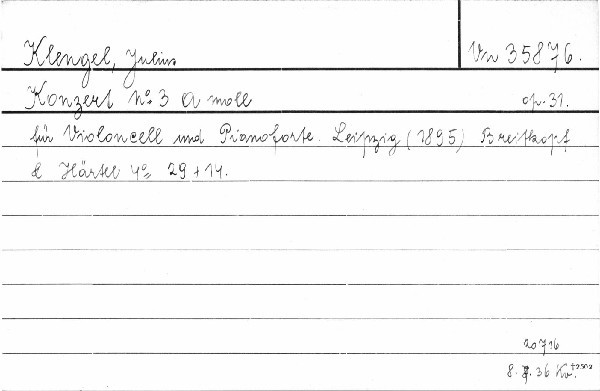 Klengel, Julius Vn 35876.
Konzert No. 3 A moll op. 31.
für Violoncell und Pianoforte. Leipzig (1895) Breitkopf
& Härtel 4o 29 + 14.
20716
8. 7. 36 Kv. +2502